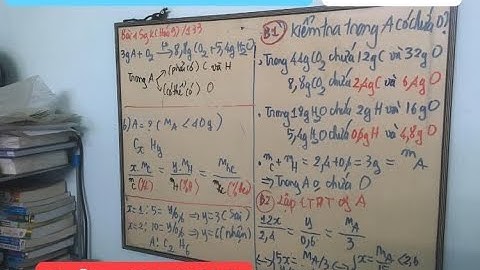 Bài 4 Sgk (Hoá 9) / 133
3g A + O2 → 8,8g CO2 + 5,4g H2O
Trong A (phải có) C và H
(có thể có) O
b) A = ? (MA < 40g)
Cx Hy
x.MC / mC = y.MH / mH = Mhc / mhc
x=1 : 5 = y/0,6 ⇒ y=3 (Sai)
x=2 : 10 = y/0,6 ⇒ y=6 (nhận)
A: C2 H6
B1 Kiểm tra trong A có chứa O?
, Trong 44g CO2 chứa 12g C và 32g O
8,8g CO2 2,4g C 6,4g O
, Trong 18g H2O chứa 2g H và 16g O
5,4g H2O chứa 0,6g H 4,8g O
. mC + mH = 2,4 + 0,6 = 3g = mA
⇒ Trong A o chứa O
B2 Lập CTPT of A
12x / 2,4 = y / 0,6 = MA / 3